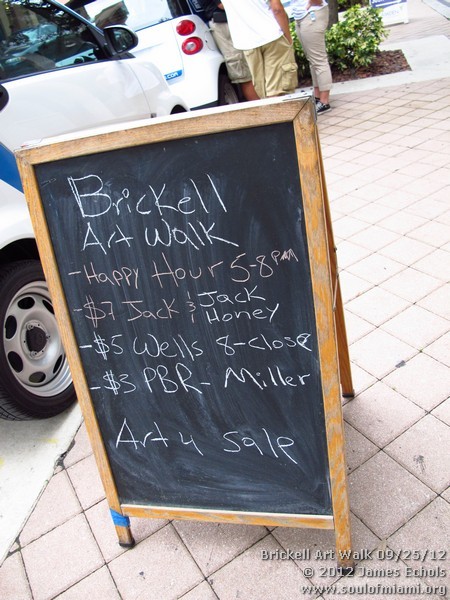 Brickell
Art Walk
-Happy Hour 5-8pm
-$7 Jack & Jack Honey
-$5 Wells 8-close
-$3 PBR- Miller
Art 4 Sale
Brickell Art Walk 09/25/12
© 2012 James Echols
www.soulofmiami.org